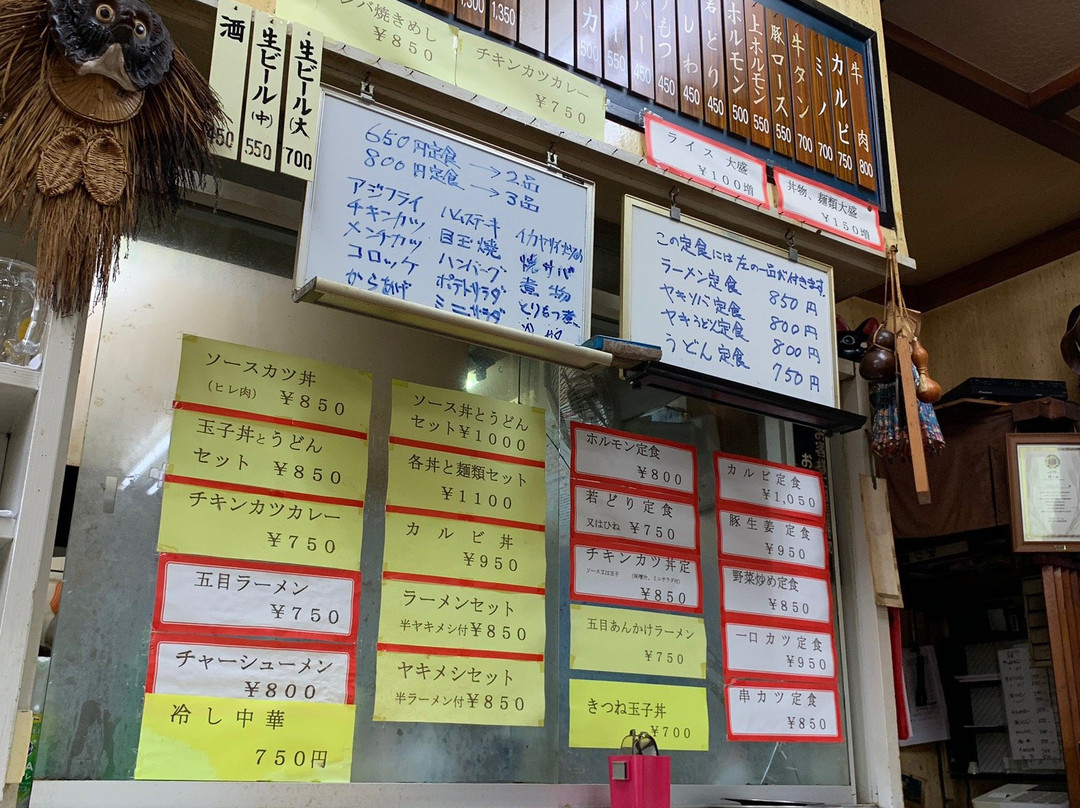 酒
450
生ビール(中)
550
生ビール(大)
700
焼きめし
¥850
チキンカツカレー
¥750
1,350
ホルモン 500
上ホルモン 550
豚ロース 550
牛タン 700
ミノ 700
カルビ 750
牛肉 800
ライス 大盛
¥100増
丼物、麺類大盛
¥150増
650円定食→2品
800円定食→3品
アジフライ
チキンカツ
メンチカツ
コロッケ
からあげ
ハムステーキ
目玉焼
ハンバーグ
ポテトサラダ
ミニサラダ
イカヤサイ炒め
焼サバ
煮物
とりもつ煮
この定食には左の一品が付きます。
ラーメン定食 850円
ヤキソバ定食 800円
ヤキうどん定食 800円
うどん定食 750円
ソースカツ丼
(ヒレ肉) ¥850
玉子丼とうどん
セット ¥850
チキンカツカレー
¥750
五目ラーメン
¥750
チャーシューメン
¥800
冷し中華
750円
ソース丼とうどん
セット¥1000
各丼と麺類セット
¥1100
カルビ丼
¥950
ラーメンセット
半ヤキメシ付¥850
ヤキメシセット
半ラーメン付¥850
ホルモン定食
¥800
若どり定食
又はひね ¥750
チキンカツ丼定
ソース又は玉子 (味噌汁、ミニサラダ付)
¥850
五目あんかけラーメン
¥750
きつね玉子丼
¥700
カルビ定食
¥1,050
豚生姜定食
¥950
野菜炒め定食
¥850
一口カツ定食
¥950
串カツ定食
¥850